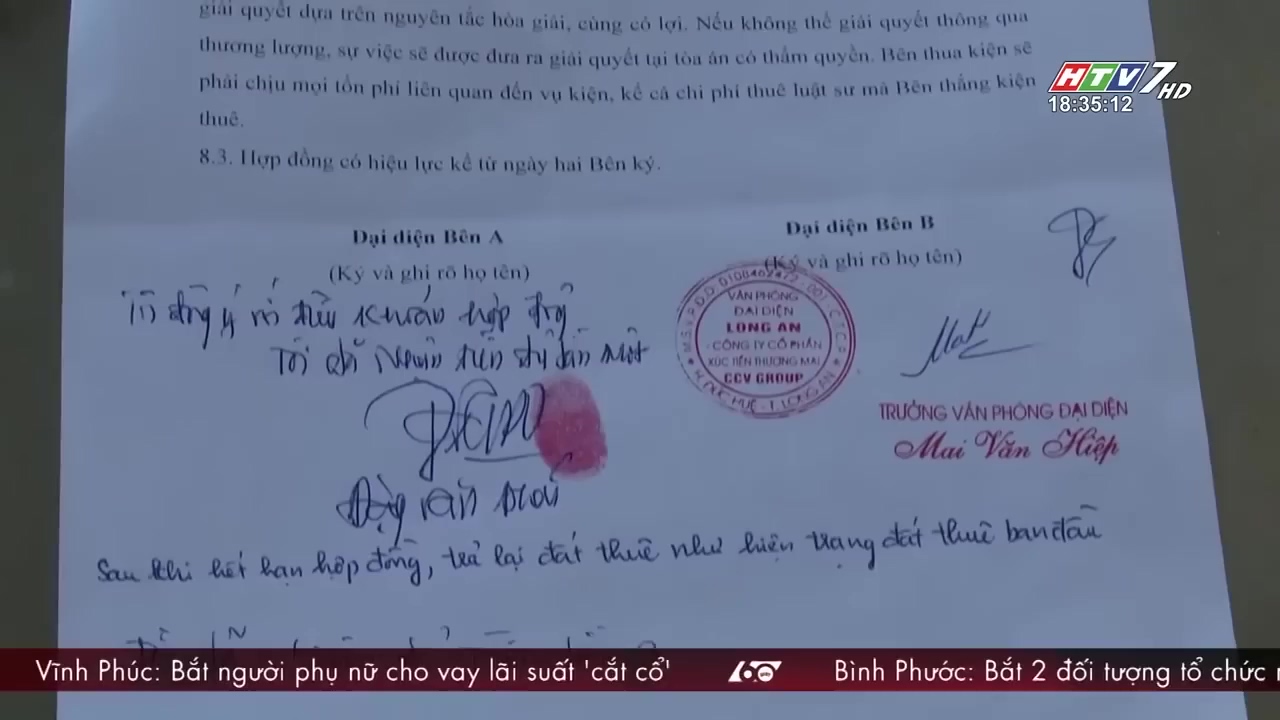 giải quyết dựa trên nguyên tắc hòa giải, cùng có lợi. Nếu không thể giải quyết thông qua
thương lượng, sự việc sẽ được đưa ra giải quyết tại tòa án có thẩm quyền. Bên thua kiện sẽ
phải chịu mọi tổn phí liên quan đến vụ kiện, kể cả chi phí thuê luật sư mà Bên thắng kiện
thuê.
8.3. Hợp đồng có hiệu lực kể từ ngày hai Bên ký.
HTV7 HD
18:35:12
Đại diện Bên A
(Ký và ghi rõ họ tên)
Đại diện Bên B
(Ký và ghi rõ họ tên)
khoản hợp đồng
VĂN PHÒNG
ĐẠI DIỆN
LONG AN
CÔNG TY CỔ PHẦN
XÚC TIẾN THƯƠNG MẠI
CCV GROUP
TRƯỞNG VĂN PHÒNG ĐẠI DIỆN
Mai Văn Hiệp
Sau khi hết hạn hợp đồng, trả lại đất thuê như hiện trạng đất thuê ban đầu
Vĩnh Phúc: Bắt người phụ nữ cho vay lãi suất 'cắt cổ'
60
Bình Phước: Bắt 2 đối tượng tổ chức